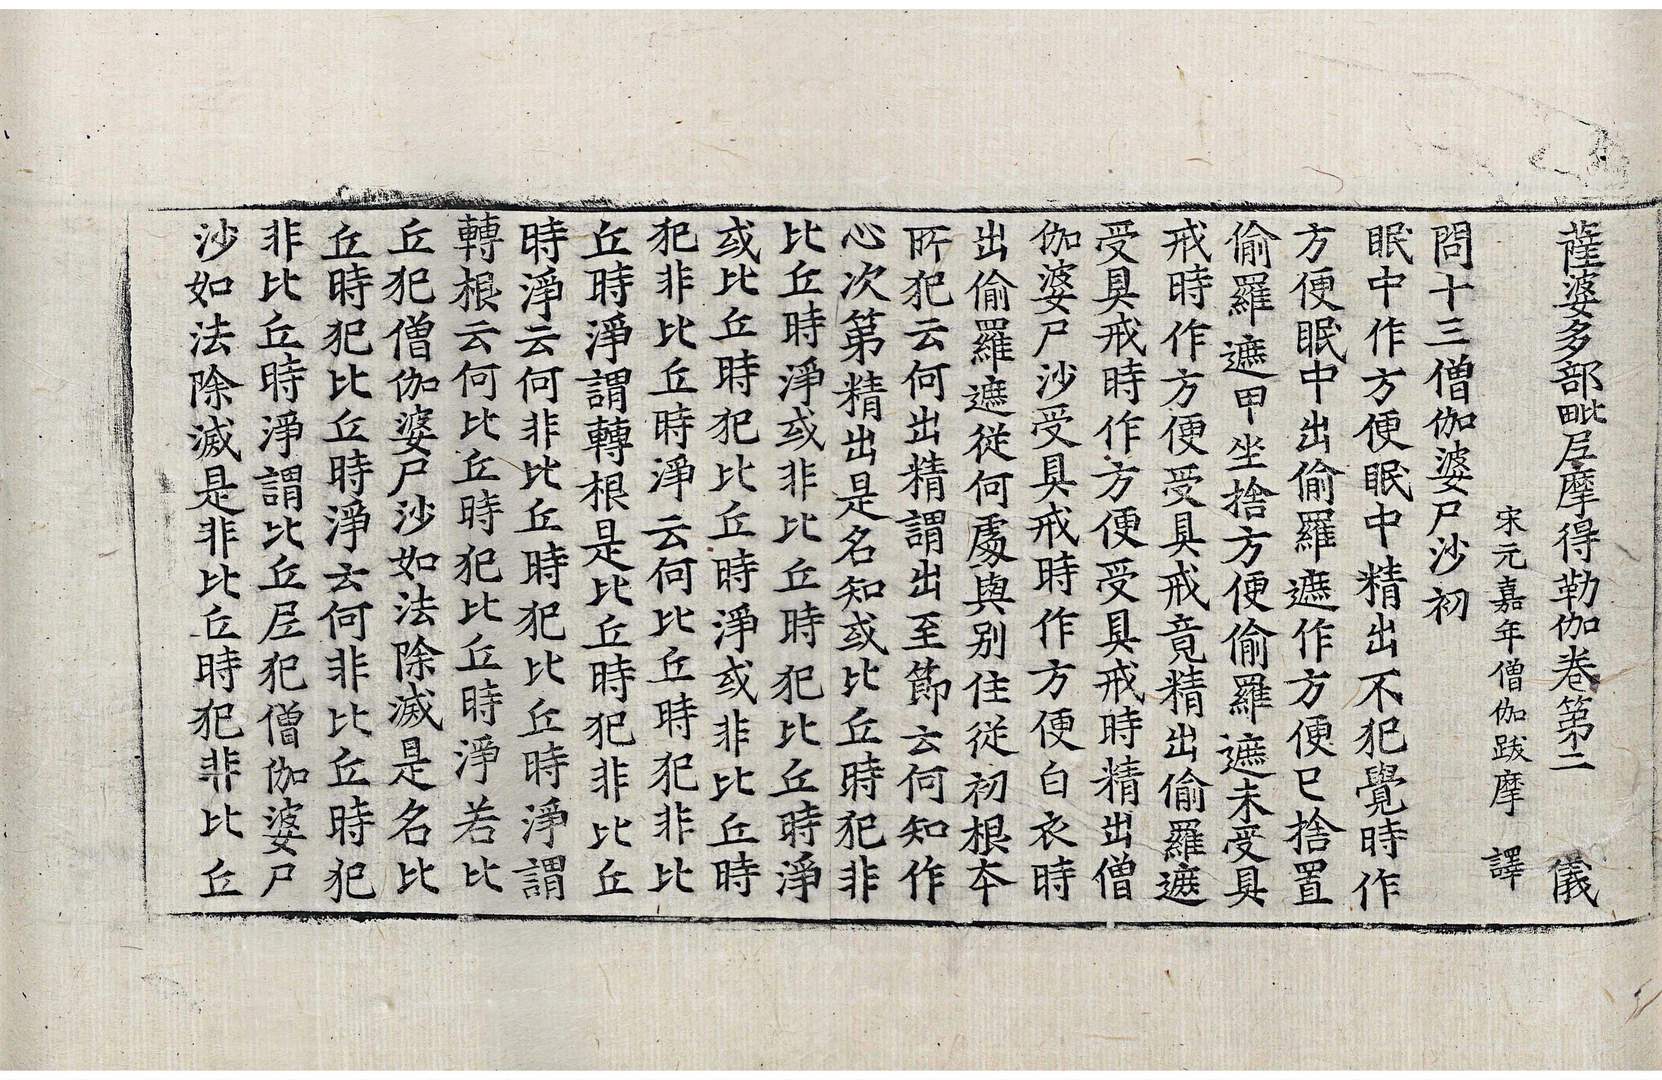 薩婆多部毗尼摩得勒伽卷第二　儀
宋元嘉年僧伽跋摩　譯
問十三僧伽婆尸沙初
眠中作方便眠中精出不犯覺時作
方便眠中出偷羅遮作方便已捨置
偷羅遮甲坐捨方便偷羅遮未受具
戒時作方便受具戒竟精出偷羅遮
受具戒時作方便受具戒時精出僧
伽婆尸沙受具戒時作方便白衣時
出偷羅遮從何處與别住從初根本
所犯云何出精謂出至節云何知作
心次第精出是名知或比丘時犯非
比丘時淨或非比丘時犯比丘時淨
或比丘時犯比丘時淨或非比丘時
犯非比丘時淨云何比丘時犯非比
丘時淨謂轉根是比丘時犯非比丘
時淨云何非比丘時犯比丘時淨謂
轉根云何比丘時犯比丘時淨若比
丘犯僧伽婆尸沙如法除滅是名比
丘時犯比丘時淨云何非比丘時犯
非比丘時淨謂比丘尼犯僧伽婆尸
沙如法除滅是非比丘時犯非比丘